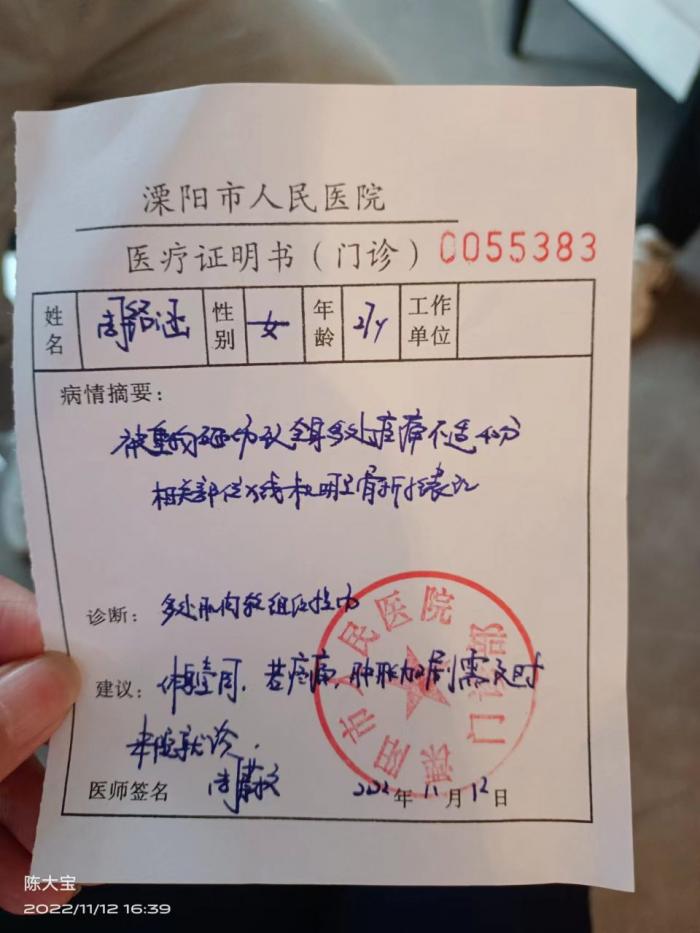 溧阳市人民医院
医疗证明书（门诊） 0055383
姓名 性别 女 年龄 27y 工作单位
病情摘要：
被重物砸伤致全身多处疼痛不适
相关部位X线未明显骨折
诊断：多处肌肉软组织挫伤
建议：休壹周，若疼痛、肿胀加剧需及时
来院就诊.
医师签名 2022年11月12日
溧阳市人民医院
门诊部
陈大宝
2022/11/12 16:39